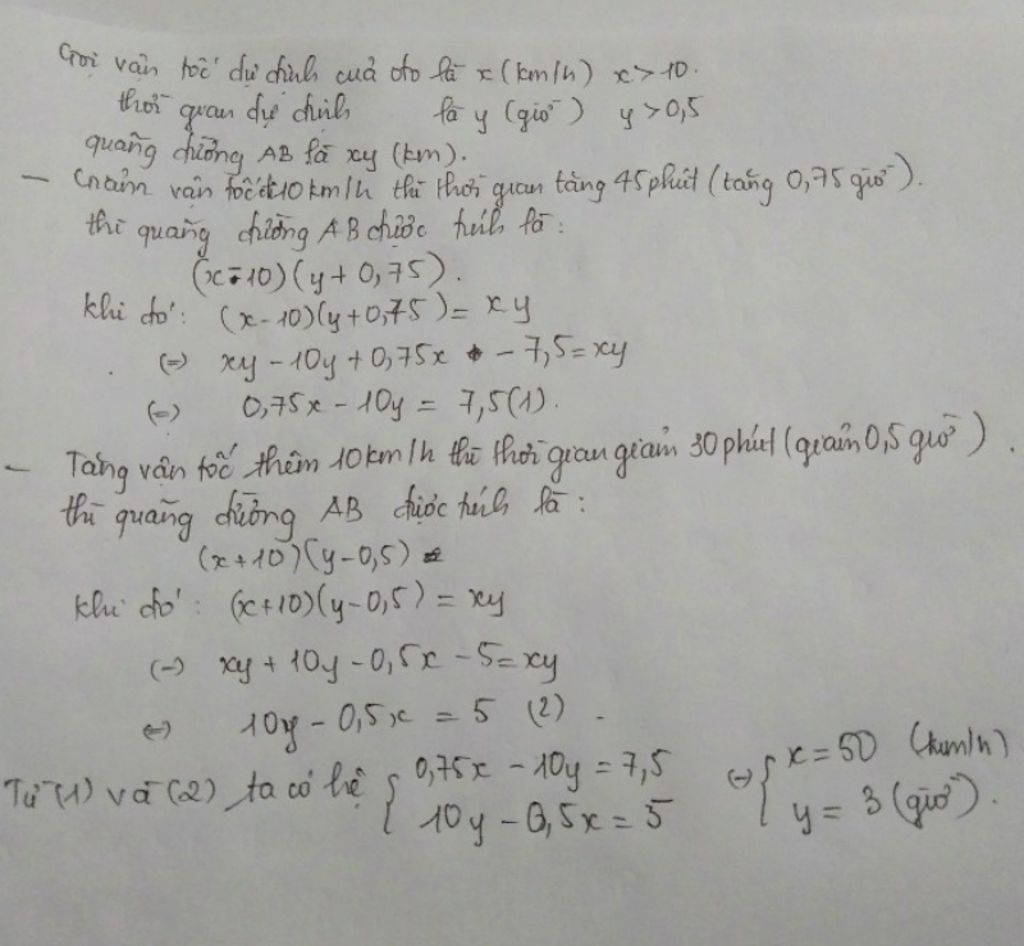 Gọi vận tốc dự định của ôto là x (km/h) x > 10.
thời gian dự định là y (giờ) y > 0,5
quãng đường AB là xy (km).
- Giảm vận tốc đi 10 km/h thì thời gian tăng 45 phút (tăng 0,75 giờ).
thì quãng đường AB được tính là:
(x-10)(y + 0,75).
Khi đó: (x-10)(y+0,75) = xy
(=) xy - 10y + 0,75x - 7,5 = xy
(=) 0,75x - 10y = 7,5 (1).
- Tăng vận tốc thêm 10 km/h thì thời gian giảm 30 phút (giảm 0,5 giờ).
thì quãng đường AB được tính là:
(x+10)(y-0,5)
Khi đó: (x+10)(y-0,5) = xy
(=) xy + 10y - 0,5x - 5 = xy
(=) 10y - 0,5x = 5 (2).
Từ (1) và (2) ta có hệ { 0,75x - 10y = 7,5 (=) { x = 50 (km/h)
10y - 0,5x = 5 y = 3 (giờ).